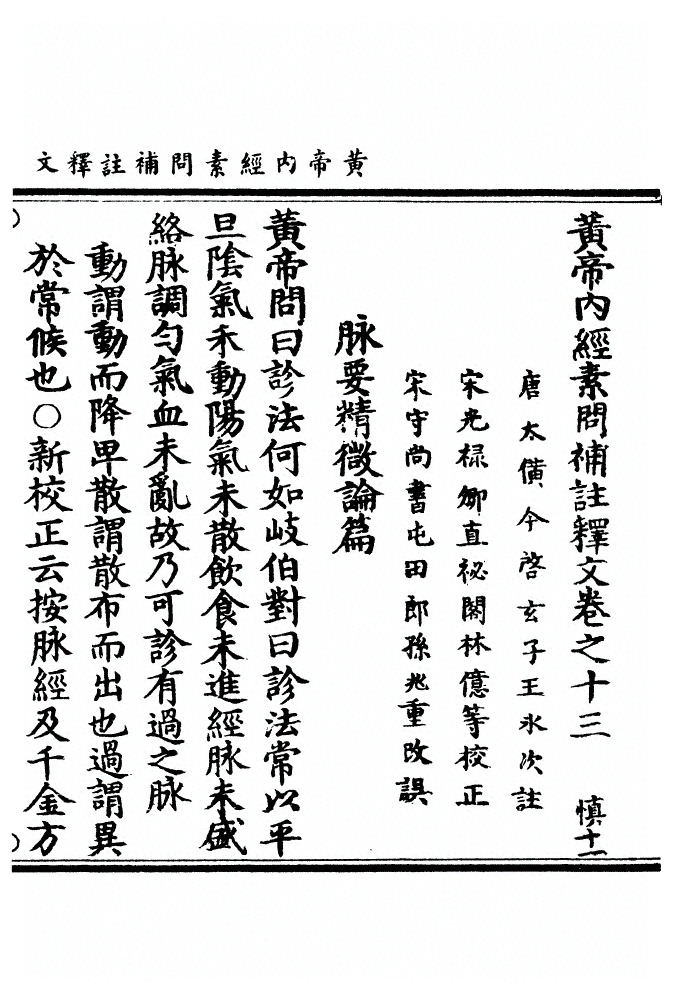 黄帝内經素問補註釋文
黄帝內經素問補註釋文卷之十三 慎十一
唐太僕令啓玄子王氷次註
宋光禄卿直祕閣林億等校正
宋守尚書屯田郎孫兆重改誤
脉要精微論篇
黄帝問曰診法何如岐伯對曰診法常以平
旦陰氣未動陽氣未散飲食未進經脉未盛
絡脉調勻氣血未亂故乃可診有過之脉
動謂動而降卑散謂散布而出也過謂異
於常候也○新校正云按脉經及千金方